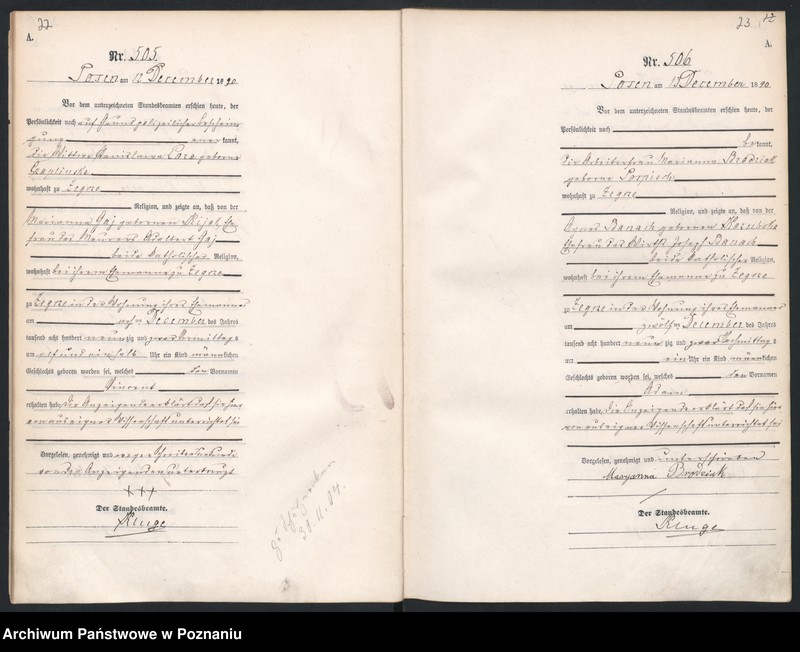 22
A.
Nr. 505.
Posen am 13 December 1890
Vor dem unterzeichneten Standesbeamten erschien heute, der
Persönlichkeit nach auf Grund polizeilicher Beschein
gung anerkannt,
die Wittwe Stanislawa geborene
Czaplinska
wohnhaft zu Zegrze
Religion, und zeigte an, daß von der
Marianna Gaj geborenen Ehe
frau des Maurers Adalbert Gaj
beide katholischer Religion,
wohnhaft bei ihrem Ehemanne zu Zegrze
zu Zegrze in der Wohnung ihres Ehemannes
am ten December des Jahres
tausend acht hundert neunzig und Vormittags
um elf und ein halb Uhr ein Kind männlichen
Geschlechts geboren worden sei, welches den Vornamen
Vincent
erhalten habe. Die Anzeigende erklärt daß sie hier
von aus eigener Wissenschaft unterrichtet sei
Vorgelesen, genehmigt und wegen Schreibensunkunde
von der Anzeigenden unterkreuzt
+++
Der Standesbeamte.
Kluge
28.11.84.
23
A.
Nr. 506
Posen am 13 December 1890
Vor dem unterzeichneten Standesbeamten erschien heute, der
Persönlichkeit nach
bekannt,
die Arbeiterfrau Marianna Brodziak
geborene
wohnhaft zu Zegrze
Religion, und zeigte an, daß von der
Agnes Banach geborenen
Ehefrau des Wirths Josef Banach
beide katholischer Religion,
wohnhaft bei ihrem Ehemanne zu Zegrze
zu Zegrze in der Wohnung ihres Ehemannes
am zwölften December des Jahres
tausend acht hundert neunzig und Nachmittags
um ein Uhr ein Kind männlichen
Geschlechts geboren worden sei, welches den Vornamen
Adam
erhalten habe. Die Anzeigende erklärt daß sie hier
von aus eigener Wissenschaft unterrichtet sei
Vorgelesen, genehmigt und unterschrieben
Maryanna Brodziak
Der Standesbeamte.
Kluge
Archiwum Państwowe w Poznaniu